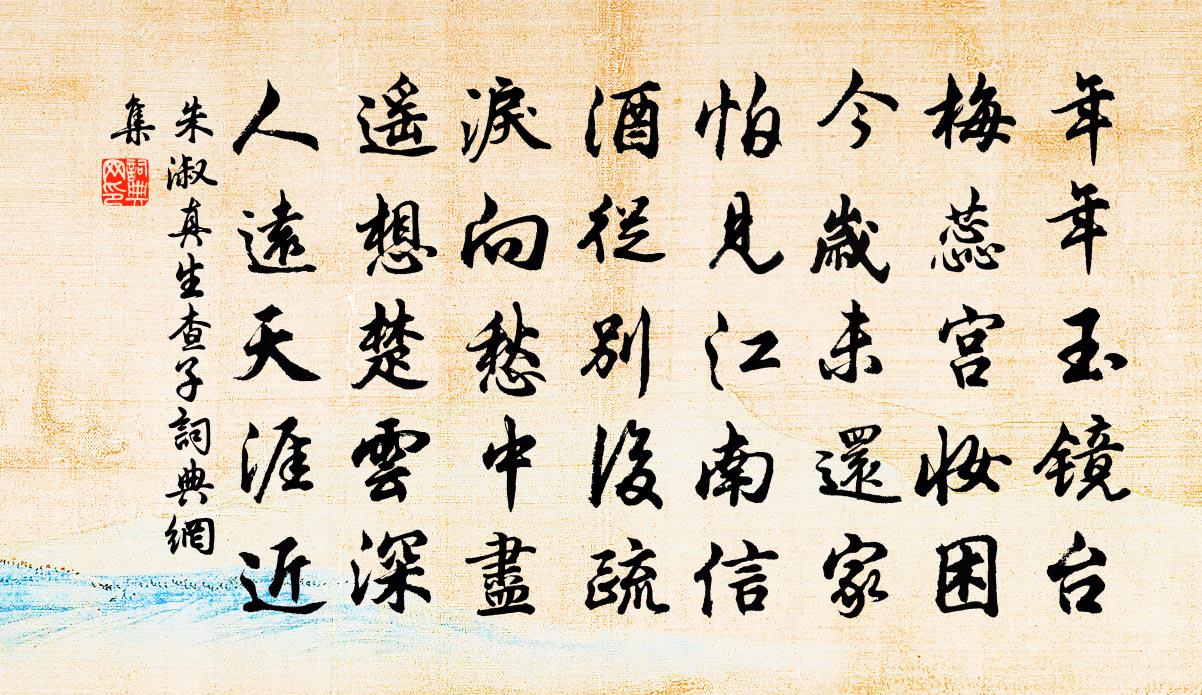 年年玉镜台
梅蕊宫妆困
今歲未還家
怕見江南信
酒從別後疏
淚向愁中盡
遥想楚雲深
人遠天涯近
朱淑真生查子詞典網
集
詞典
网印